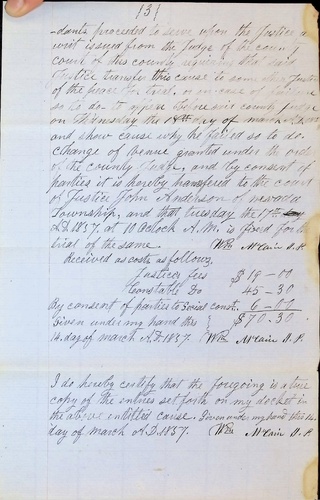 131
-dants proceeded to serve upon the Justice a
writ issued from the Judge of the county
court of this county requiring that said
Justice transfer this cause to some other Justice
of the peace for trial. or in case of failure
so to do to appear before said county Judge
on Thursday the 18th day of march A.D. 1857
and show cause why he failed so to do.
Change of Venue granted under the order
of the county Judge, and by consent of
parties it is hereby transfered to the court
of Justice John Anderson of nevada
Township, and that tuesday the 17th
A.D. 1857. at 10 Oclock A.M. is fixed for the
trial of the same. Wm McCain J.P.
Received as costs as follows,
Justices fees $19-00
Constable Do 45-30
By consent of parties to Social const. 6-00
Given under my hand this $70.30
14. day of march A.D. 1857. Wm McCain J.P.
I do hereby certify that the foregoing is a true
copy of the entries set forth on my docket in
the above entitled cause. Given under my hand this 14.
day of march A.D. 1857. Wm McCain J.P.